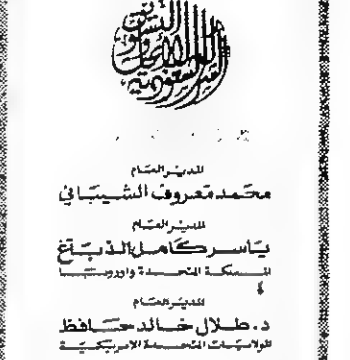 المديرالعام
محمد معروف الشيباني
المديرالعام
ياسر كامل الدباغ
المملكة المتحدة واوروبا
المديرالعام
د. طلال خالد حافظ
الولايات المتحدة الامريكية